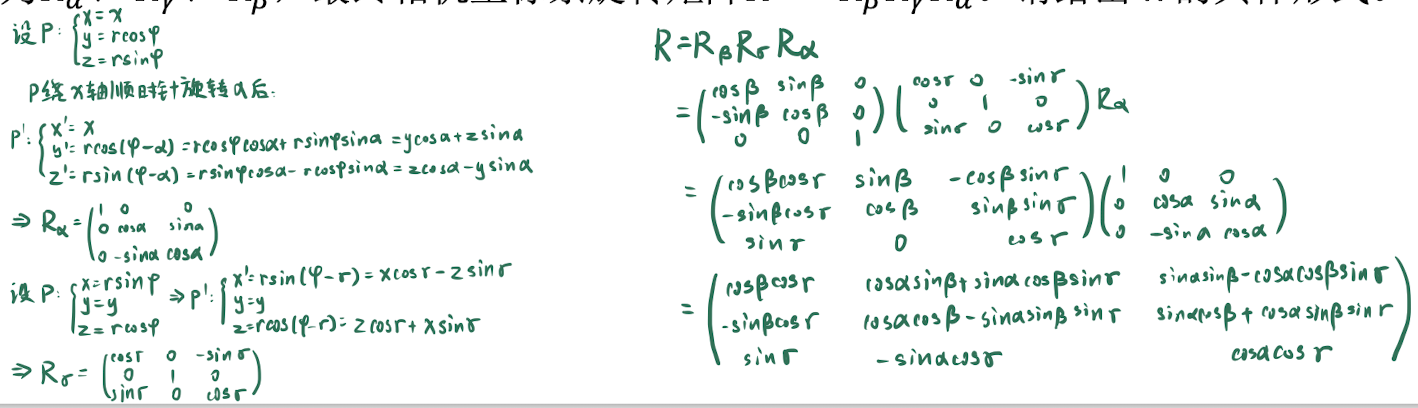 设P: { x = x
y = rcosφ
z = rsinφ
P绕x轴顺时针旋转α后:
P': { x' = x
y' = rcos(φ-α) = rcosφcosα + rsinφsinα = ycosα + zsinα
z' = rsin(φ-α) = rsinφcosα - rcosφsinα = zcosα - ysinα
⇒ Rα = ( 1 0 0
0 cosα sinα
0 -sinα cosα )
设P: { x = rsinφ
y = y
z = rcosφ
⇒ P': { x' = rsin(φ-r) = xcosr - zsinr
y = y
z = rcos(φ-r) = zcosr + xsinr
⇒ Rr = ( cosr 0 -sinr
0 1 0
sinr 0 cosr )
R = Rβ Rr Rα
= ( cosβ sinβ 0
-sinβ cosβ 0
0 0 1 ) ( cosr 0 -sinr
0 1 0
sinr 0 cosr ) Rα
= ( cosβcosr sinβ -cosβsinr
-sinβcosr cosβ sinβsinr
sinr 0 cosr ) ( 1 0 0
0 cosα sinα
0 -sinα cosα )
= ( cosβcosr cosαsinβ + sinαcosβsinr sinαsinβ - cosαcosβsinr
-sinβcosr cosαcosβ - sinαsinβsinr sinαcosβ + cosαsinβsinr
sinr -sinαcosr cosαcosr )